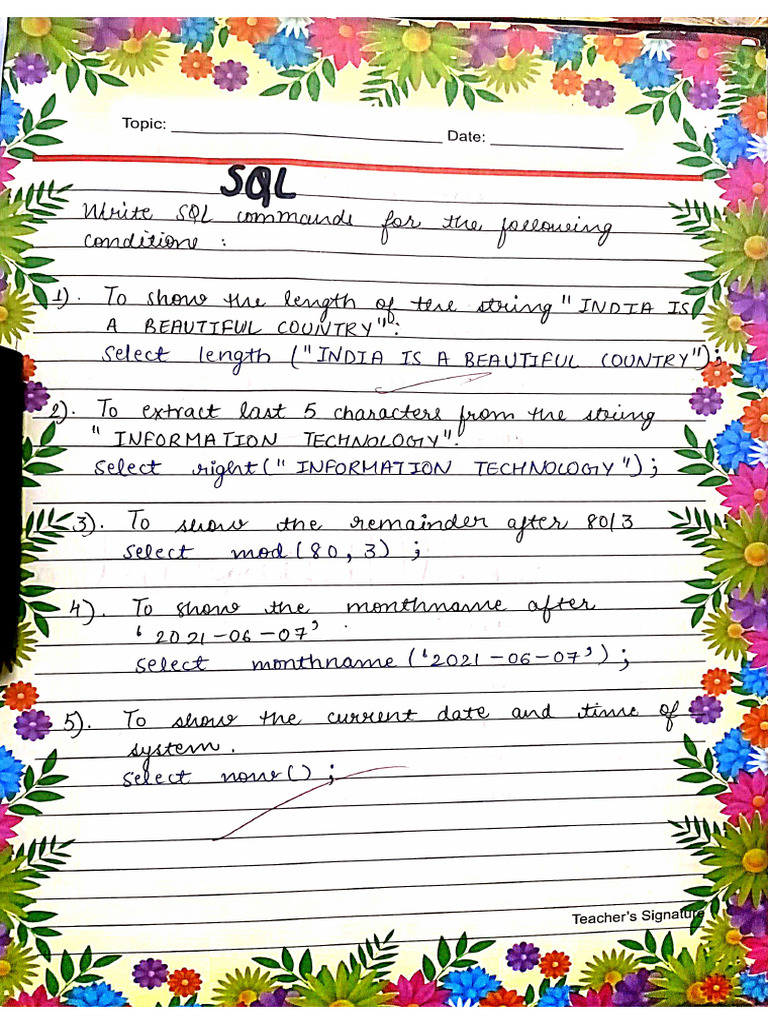 Topic: Date:
SQL
Write SQL commands for the following
conditions :
1). To show the length of the string "INDIA IS
A BEAUTIFUL COUNTRY".
select length ("INDIA IS A BEAUTIFUL COUNTRY");
2). To extract last 5 characters from the string
"INFORMATION TECHNOLOGY".
select right("INFORMATION TECHNOLOGY");
3). To show the remainder after 80/3
select mod(80, 3) ;
4). To show the monthname after
'2021-06-07' .
select monthname ('2021-06-07') ;
5). To show the current date and time of
system.
select now() ;
Teacher's Signature